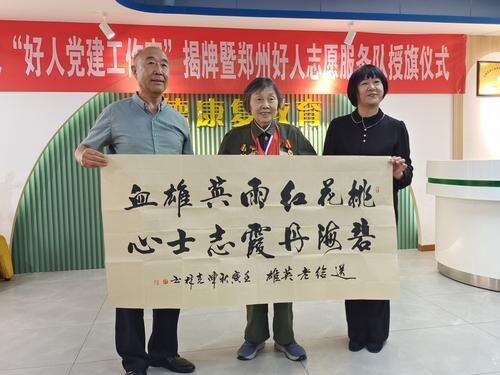 “好人党建工作室”揭牌暨郑州好人志愿服务队授旗仪式
康复教育
桃花红雨英雄血
碧海丹霞志士心
送给老英雄 壬寅秋